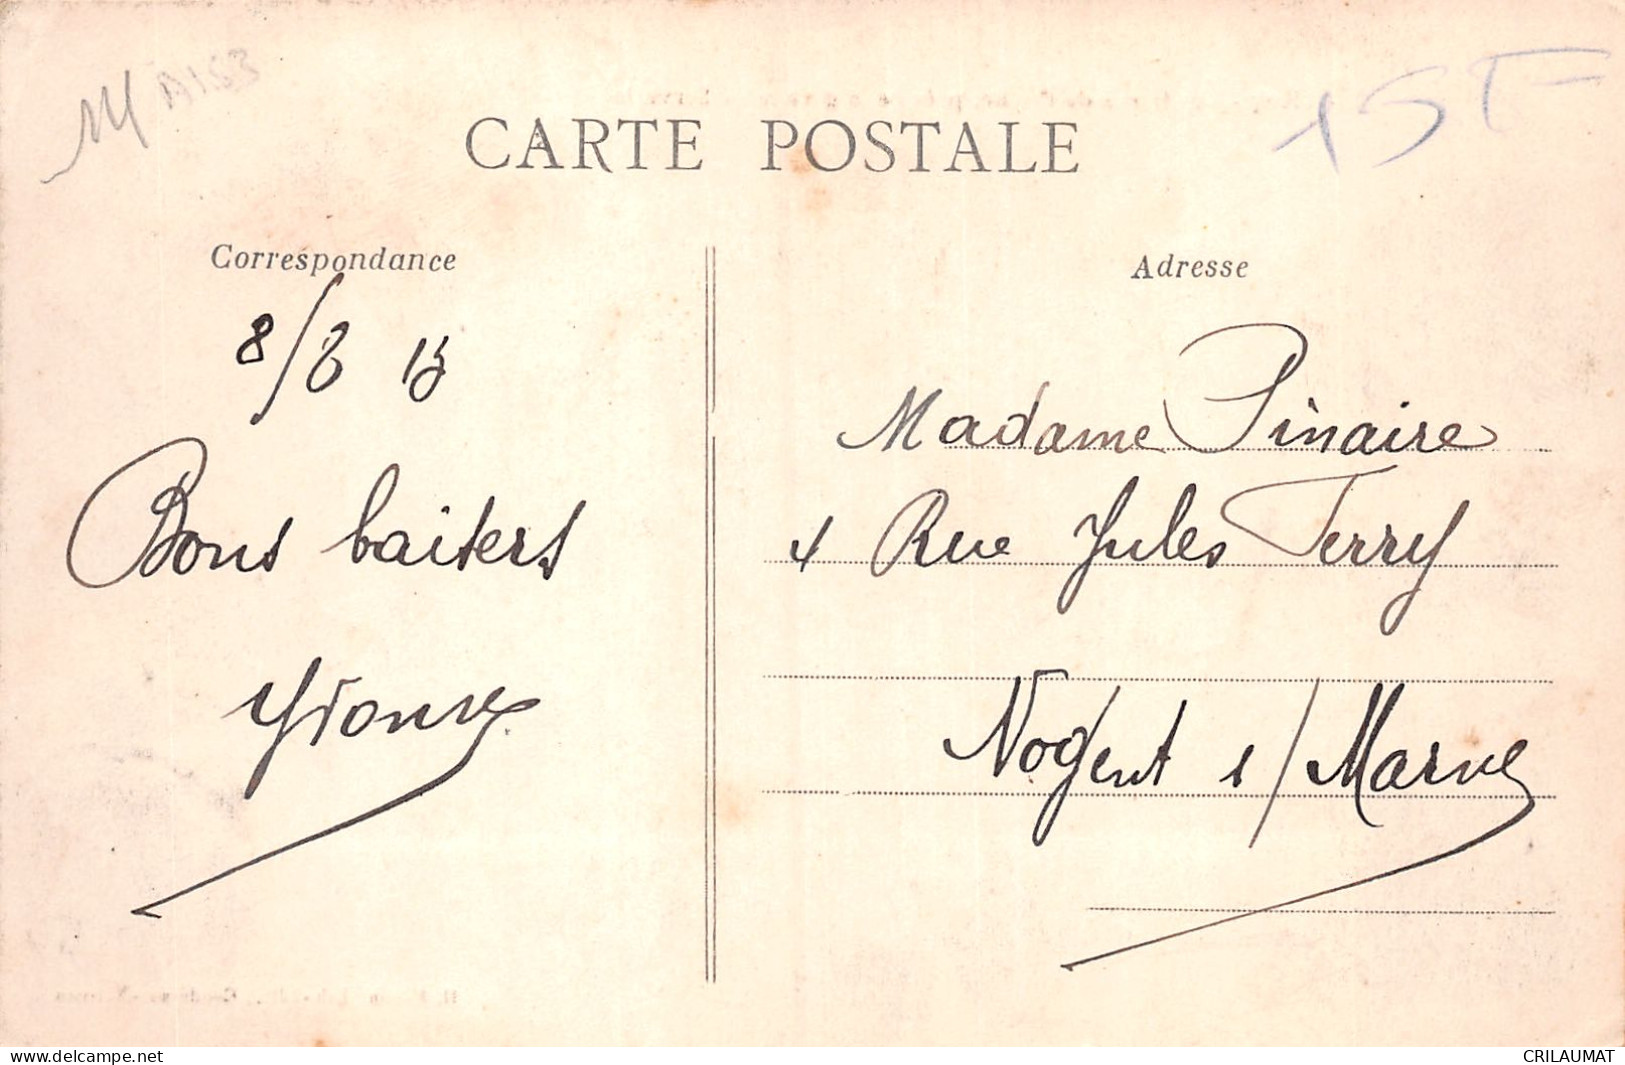 CARTE POSTALE
15F
Correspondance
8/8 13
Bons baisers
Yvonne
Adresse
Madame Pinaire
4 Rue Jules Ferry
Nogent s/ Marne
www.delcampe.net
CRILAUMAT